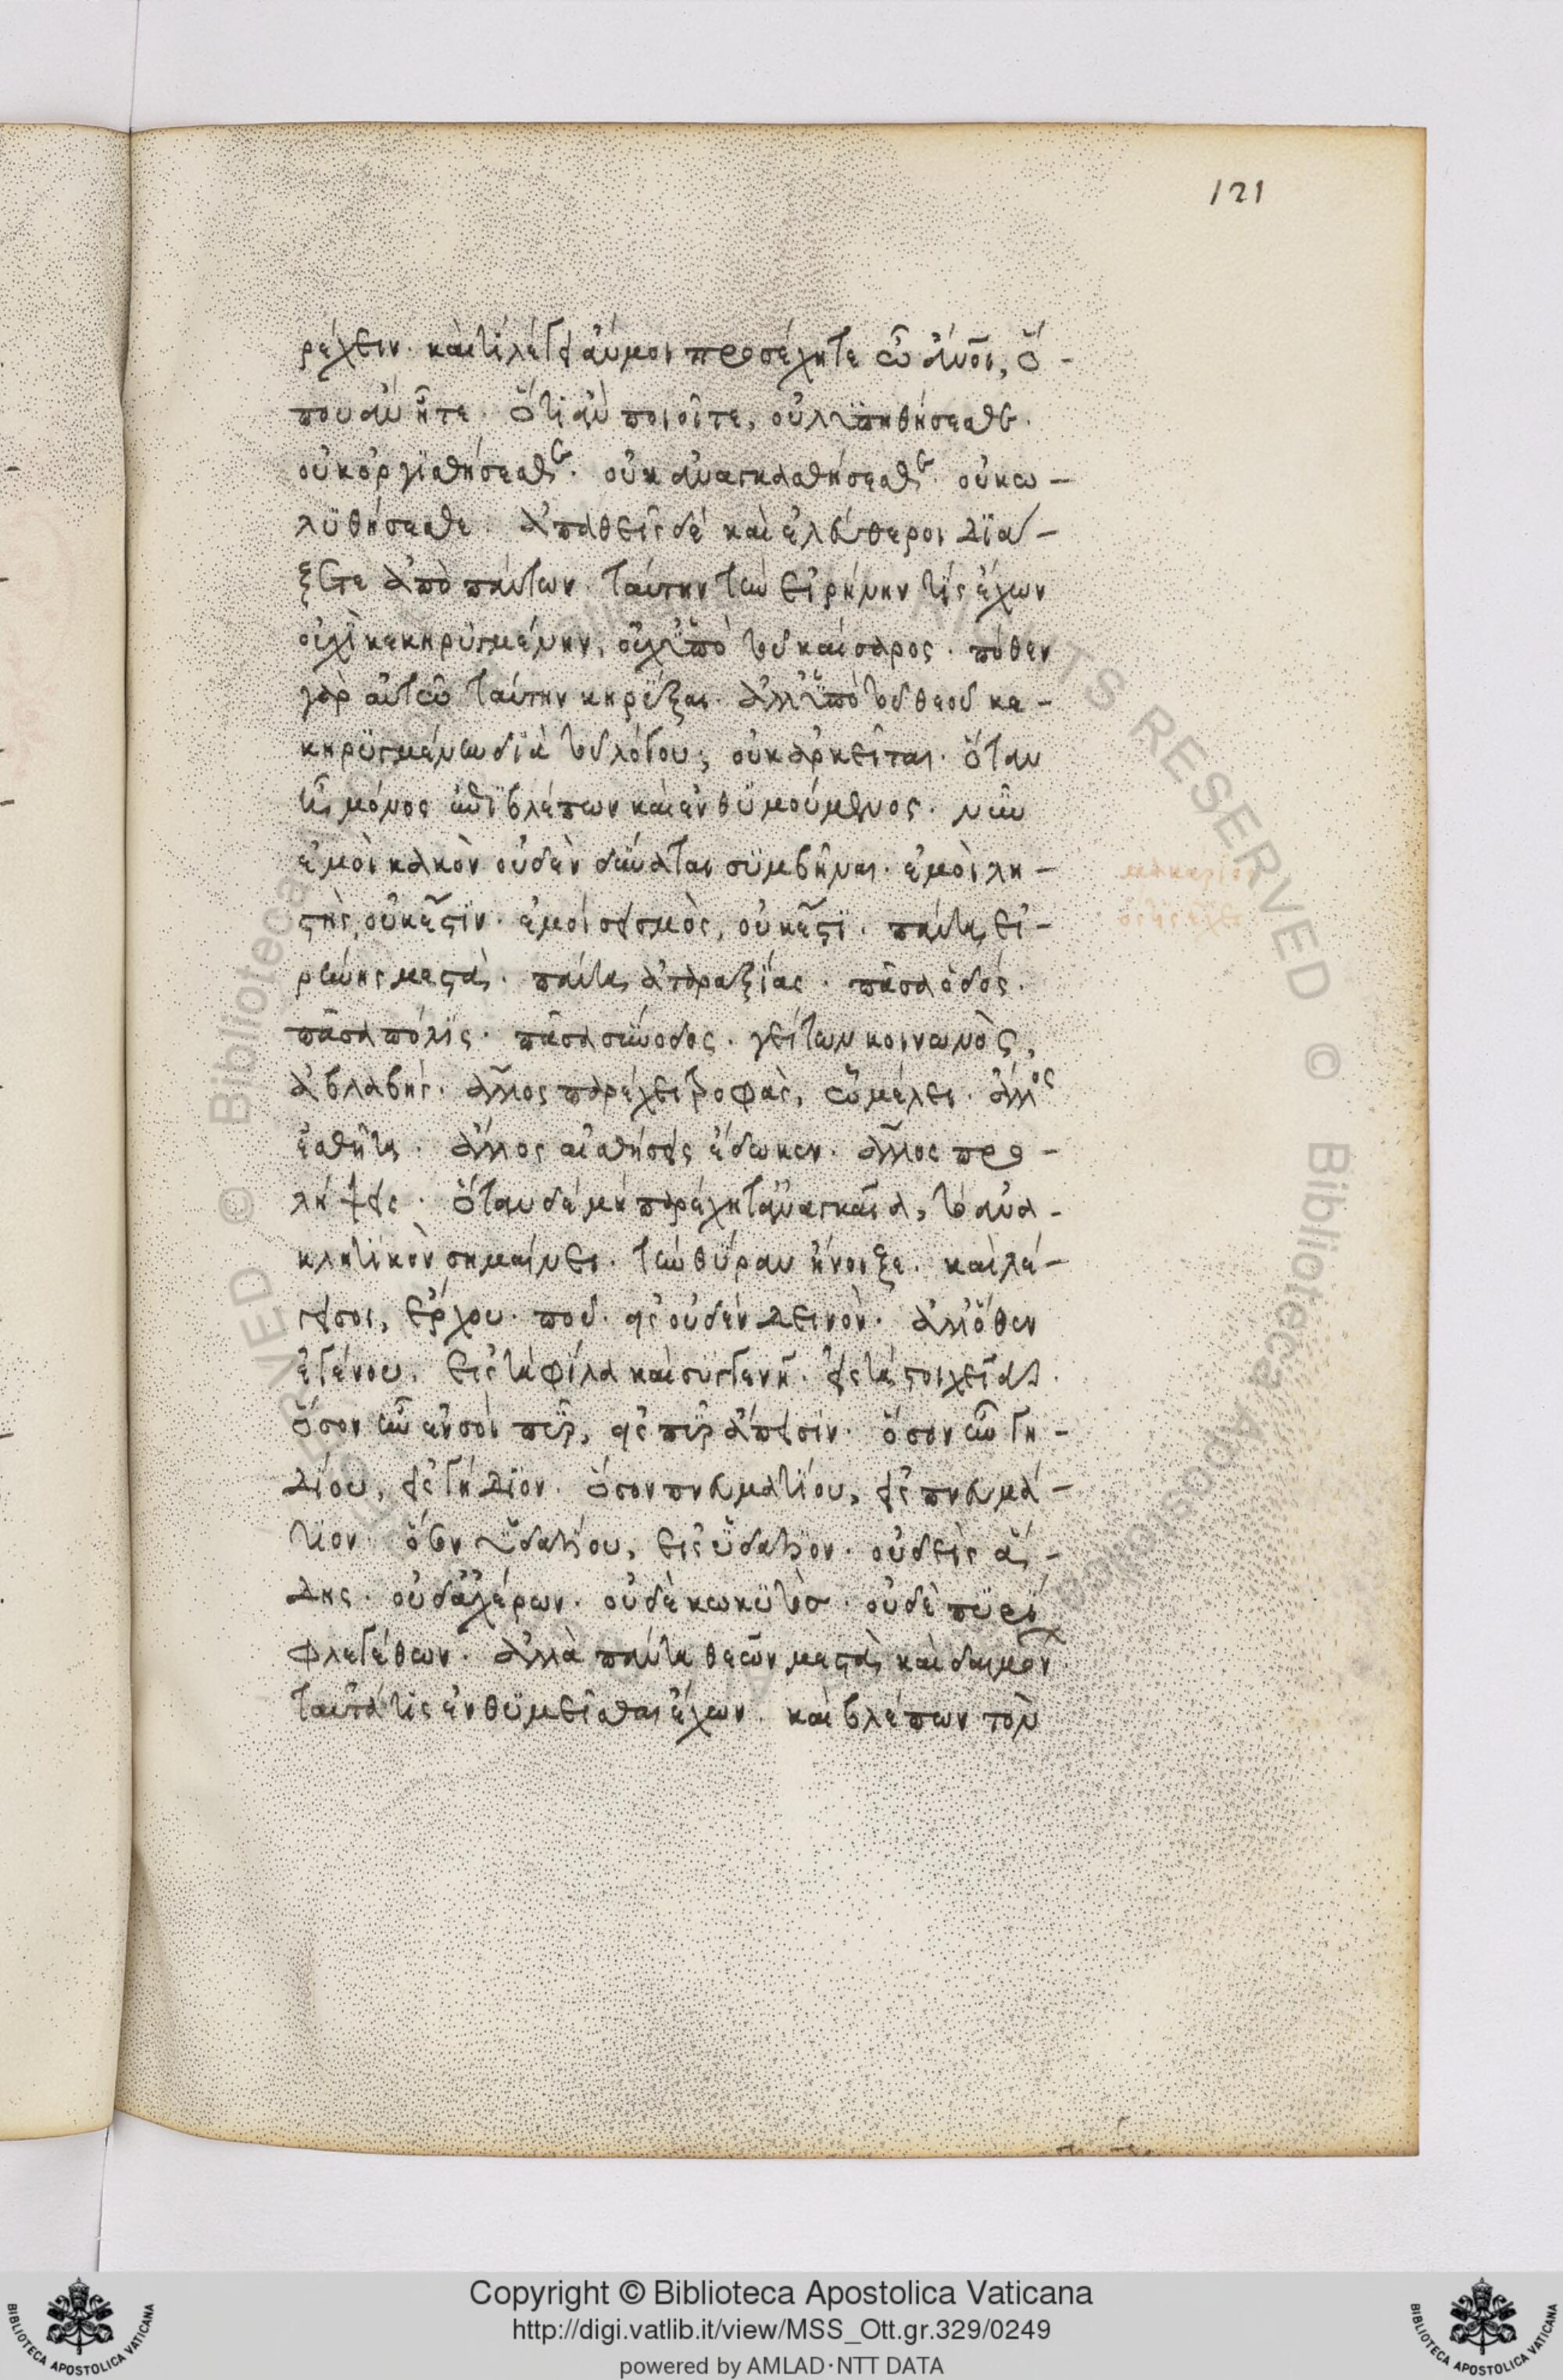 121
ρέχειν. καὶ τί λέγει ἄν μοι προσέχητε ὦ ἄνοι, ὅ-
που ἂν ἦτε. ὅτι ἂν ποιοῖτε, οὐ λϋπηθήσεσθε.
οὐκ ὀργϊσθήσεσθε. οὐκ ἀναγκασθήσεσθε. οὐ κω-
λϋθήσεσθε. ἀπαθεῖς δὲ καὶ ἐλεύθεροι διά-
ξετε ἀπὸ πάντων. ταύτην τὴν εἰρήνην τίς ἔχων
οὐχὶ κεκηρϋγμένην, οὐχ ϋπὸ τοῦ καίσαρος. πόθεν
γὰρ αὐτῷ ταύτην κηρϋξαι. ἀλλ' ϋπὸ τοῦ θεοῦ κε-
κηρϋγμένην διὰ τοῦ λόγου; οὐκ ἀρκεῖται. ὅταν
ἦ μόνος ἐπιβλέπων καὶ ἐνθϋμούμενος. νῦν
ἐμοὶ κακὸν οὐδὲν δύναται σϋμβῆναι. ἐμοὶ λη-
στὴς, οὐκ ἔστιν. ἐμοὶ σεισμὸς, οὐκ ἔστι. πάντα εἰ-
ρήνης μεστὰ. πάντα ἀταραξίας. πᾶσα ὁδός.
πᾶσα πόλις. πᾶσα σύνοδος. γείτων κοινωνὸς,
ἀβλαβής. ἄλλος παρέχει τροφὰς, ᾧ μέλει. ἄλλος
ἐσθῆτα. ἄλλος αἰσθήσεις ἔδωκεν. ἄλλος προ-
λήψεις. ὅταν δὲ μὴ παρέχη τἀναγκαῖα, τὸ ἀνα-
κλητικὸν σημαίνει. τὴν θύραν ἤνοιξε. καὶ λέ-
γει σοι, ἔρχου. ποῦ. εἰς οὐδὲν δεινὸν. ἀλλ' ὅθεν
ἐγένου. εἰς τὰ φίλα καὶ συγγενῆ. εἰς τὰ στοιχεῖα.
ὅσον ἦν ἐν σοὶ πῦρ, εἰς πῦρ ἄπεισιν. ὅσον ἦν γη-
δίου, εἰς γήδιον. ὅσον πνευματίου, εἰς πνευμά-
τιον. ὅσον ὑδατίου, εἰς ὑδάτιον. οὐδεὶς ἅ-
δης. οὐδ' ἀχέρων. οὐδὲ κωκϋτὸσ. οὐδὲ πϋρι
φλεγέθων. ἀλλὰ πάντα θεῶν μεστὰ καὶ δαιμόν
ταῦτά τις ἐνθϋμεῖσθαι ἔχων. καὶ βλέπων τὸν
μακαρίοσ
Copyright © Biblioteca Apostolica Vaticana
http://digi.vatlib.it/view/MSS_Ott.gr.329/0249
powered by AMLAD·NTT DATA